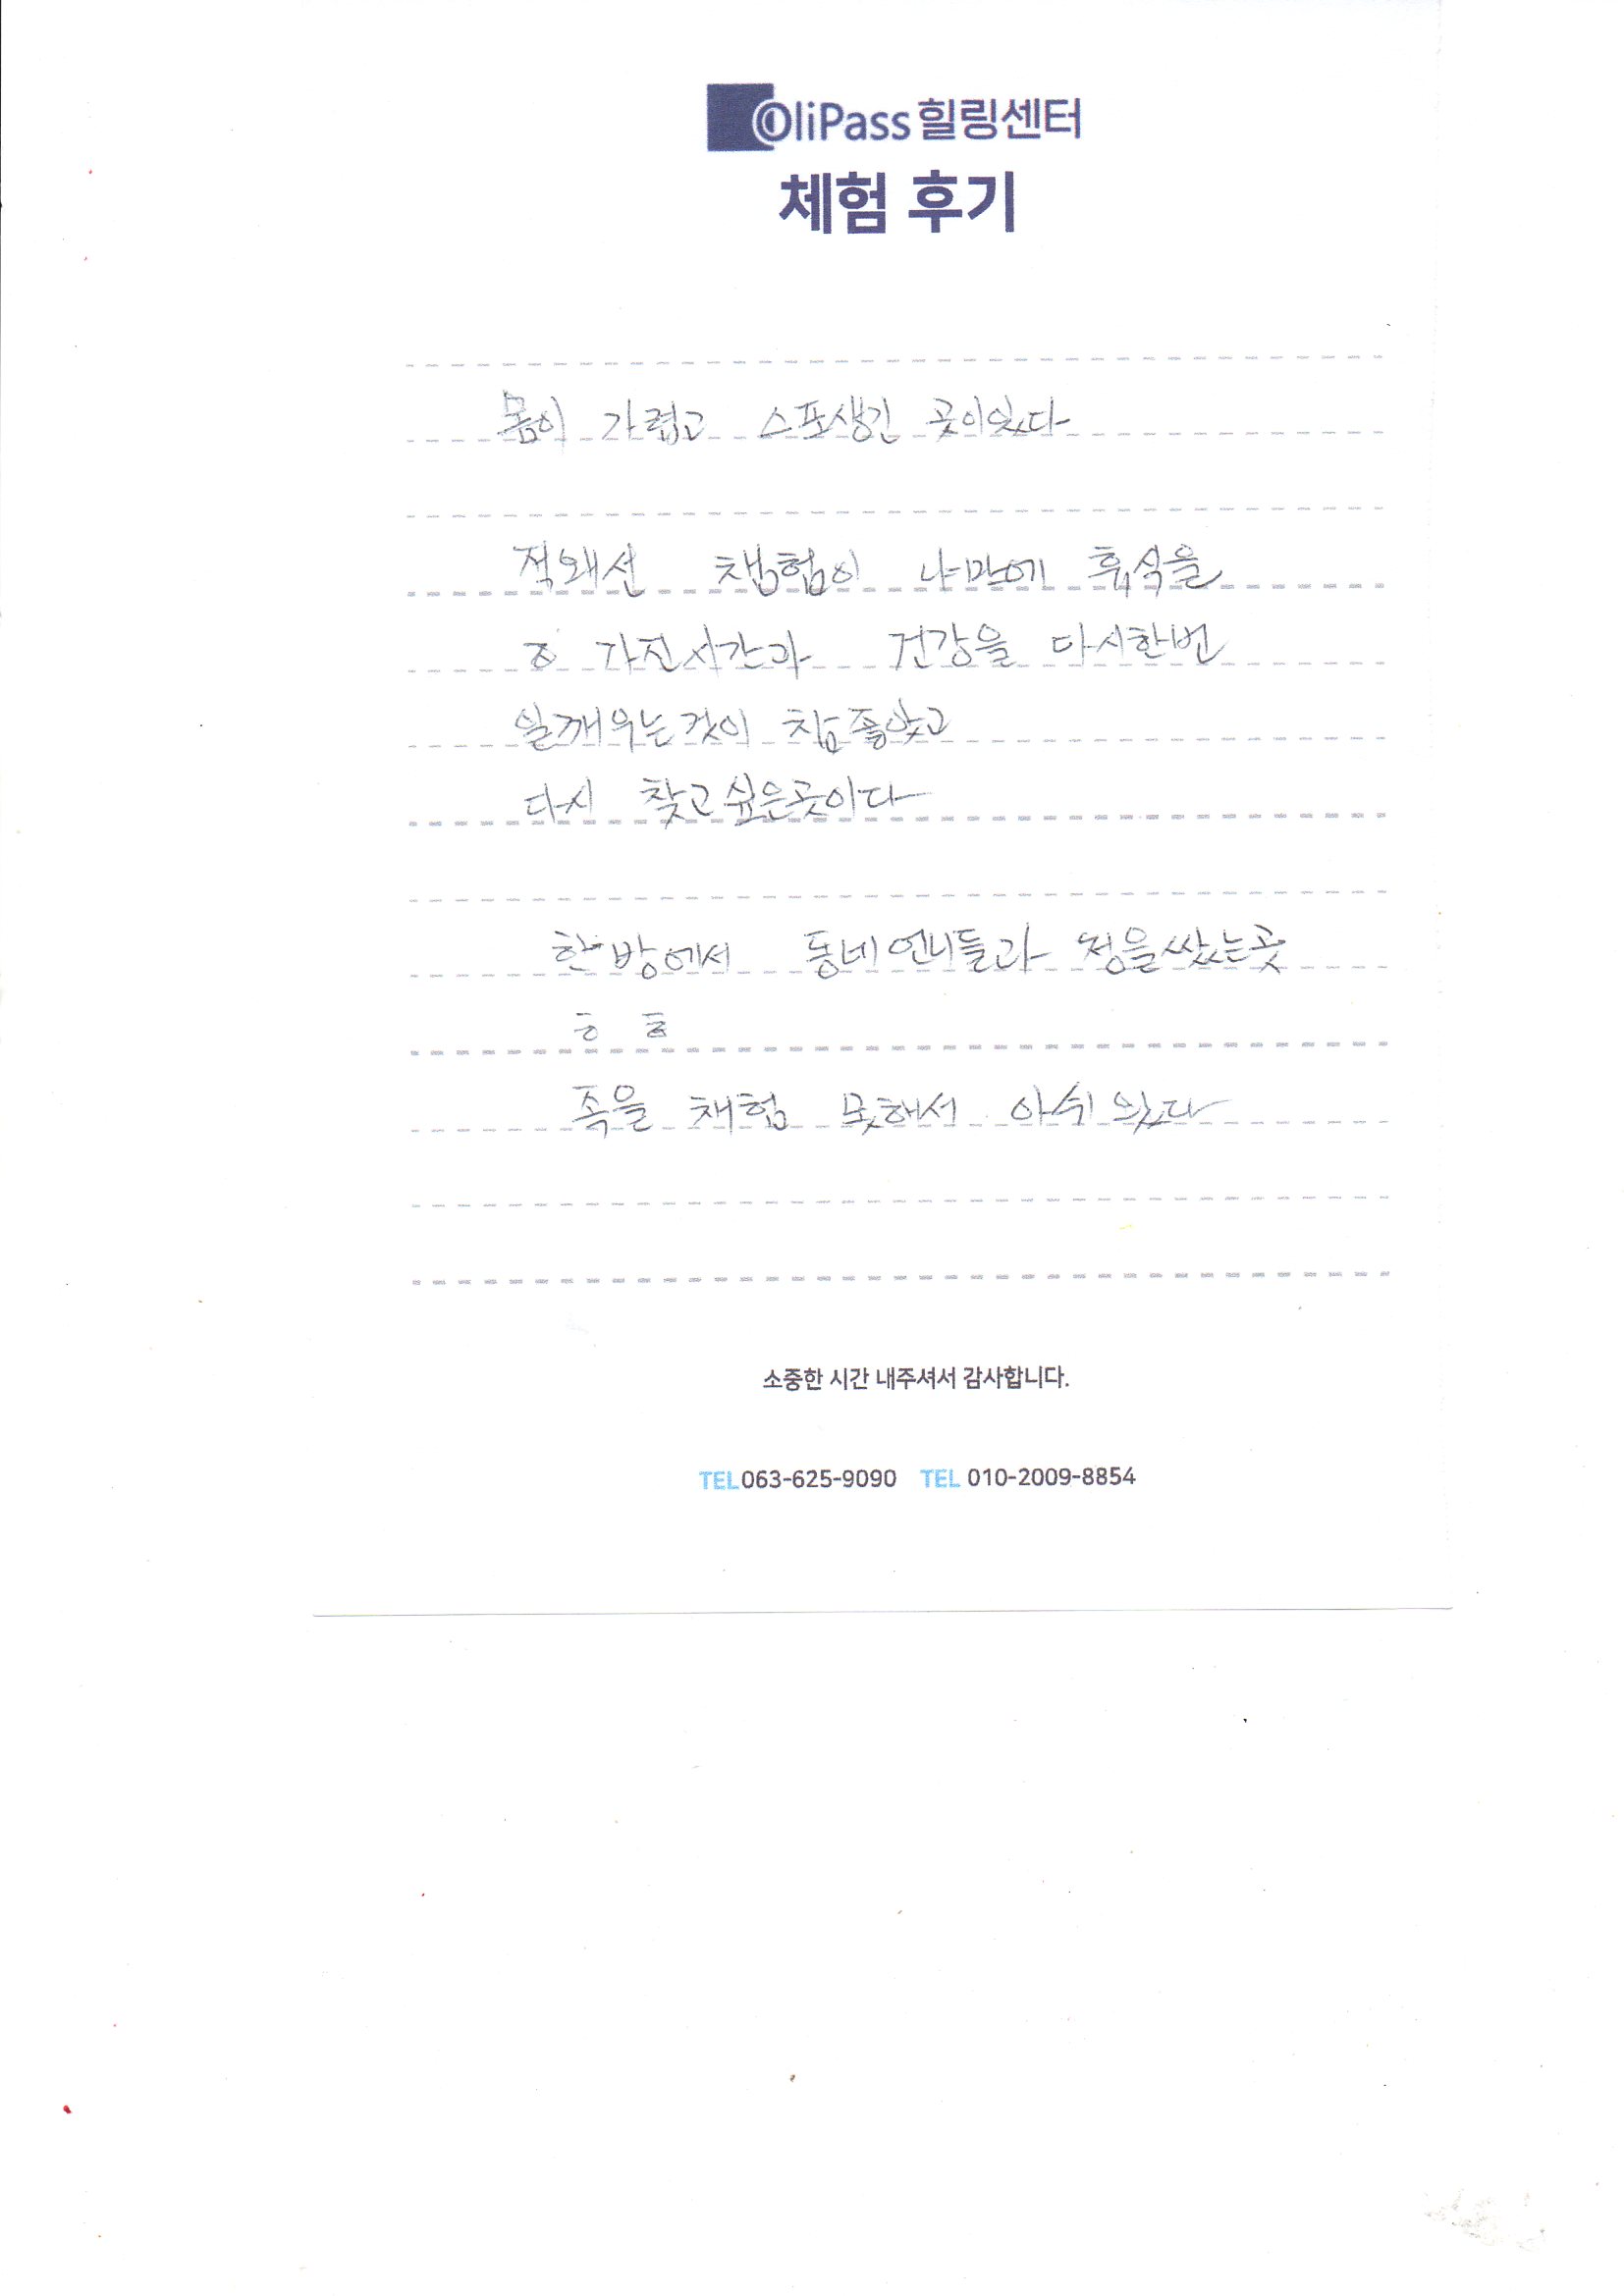 OliPass 힐링센터
체험 후기
몸이 가렵고 스포생긴 곳이있다
적외선 챔험이 나만에 휴식을
가진시간과 건강을 다시한번
일깨우는것이 참좋았고
다시 찾고싶은곳이다
한방에서 동네언니들과 정을쌌는곳
족을 채험 못해서 아쉬웠다
소중한 시간 내주셔서 감사합니다.
TEL 063-625-9090 TEL 010-2009-8854